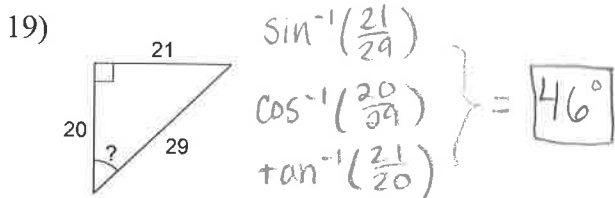 19)
21
20
29
?
sin⁻¹(21/29)
cos⁻¹(20/29)
tan⁻¹(21/20)
= 46°